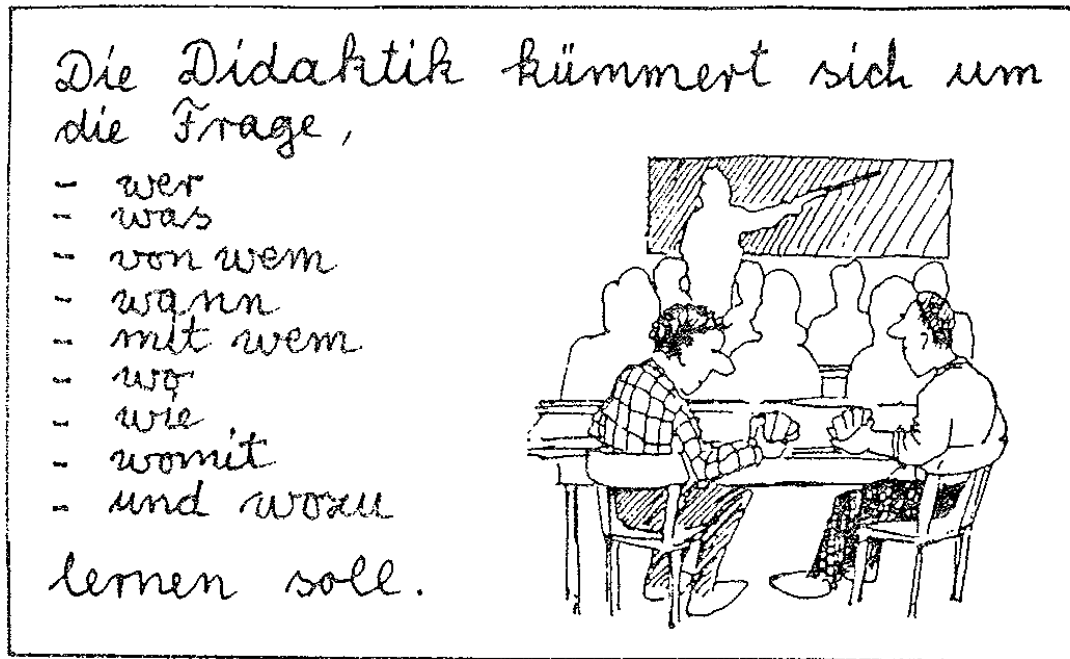 Die Didaktik kümmert sich um
die Frage,
- wer
- was
- von wem
- wann
- mit wem
- wo
- wie
- womit
- und wozu
lernen soll.